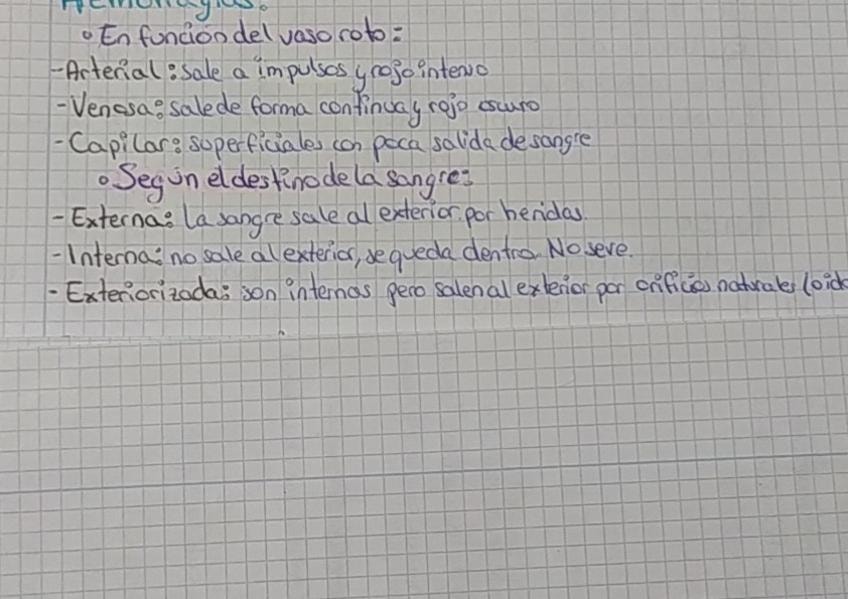 Hemorragias:
• En función del vaso roto:
- Arterial: sale a impulsos y rojo intenso
- Venosa: sale de forma continua y rojo oscuro
- Capilar: superficiales con poca salida de sangre
• Según el destino de la sangre:
- Externa: la sangre sale al exterior por heridas.
- Interna: no sale al exterior, se queda dentro. No se ve.
- Exteriorizada: son internas pero salen al exterior por orificios naturales (oíd